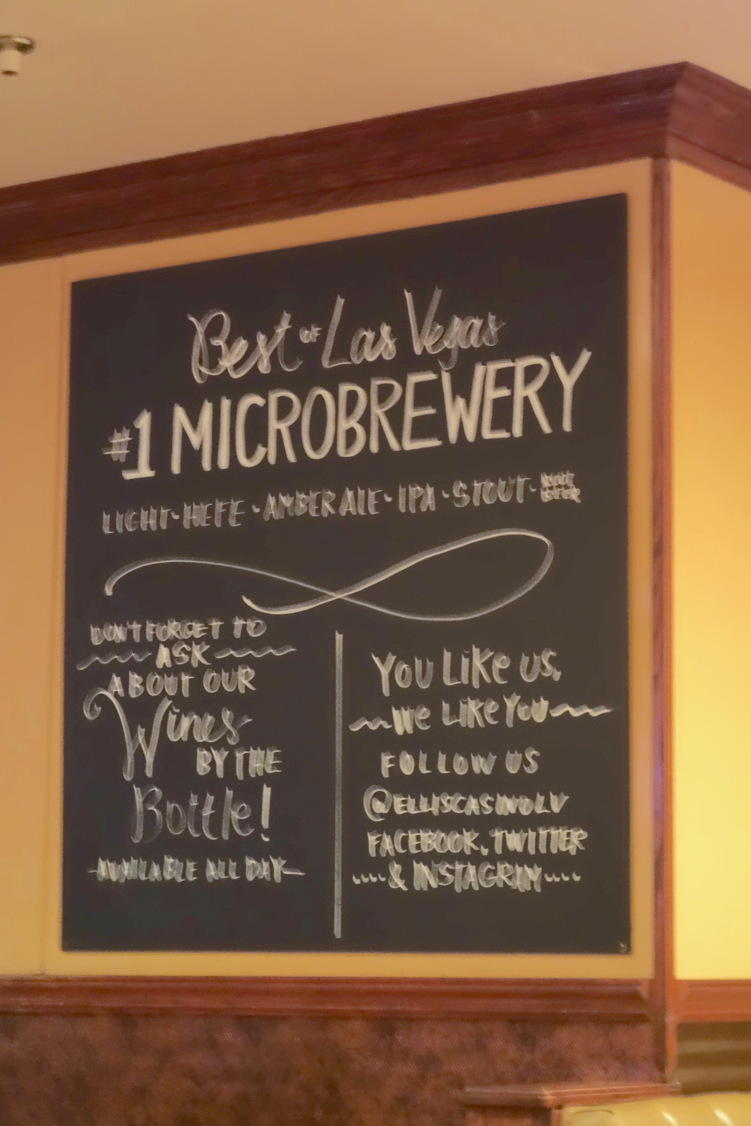 Best OF Las Vegas
#1 MICROBREWERY
LIGHT · HEFE · AMBER ALE · IPA · STOUT · ROOT BEER
DON'T FORGET TO
ASK
ABOUT OUR
Wines
BY THE
Bottle!
AVAILABLE ALL DAY
YOU LIKE US,
WE LIKE YOU
FOLLOW US
@ELLISCASINOLV
FACEBOOK, TWITTER
& INSTAGRAM